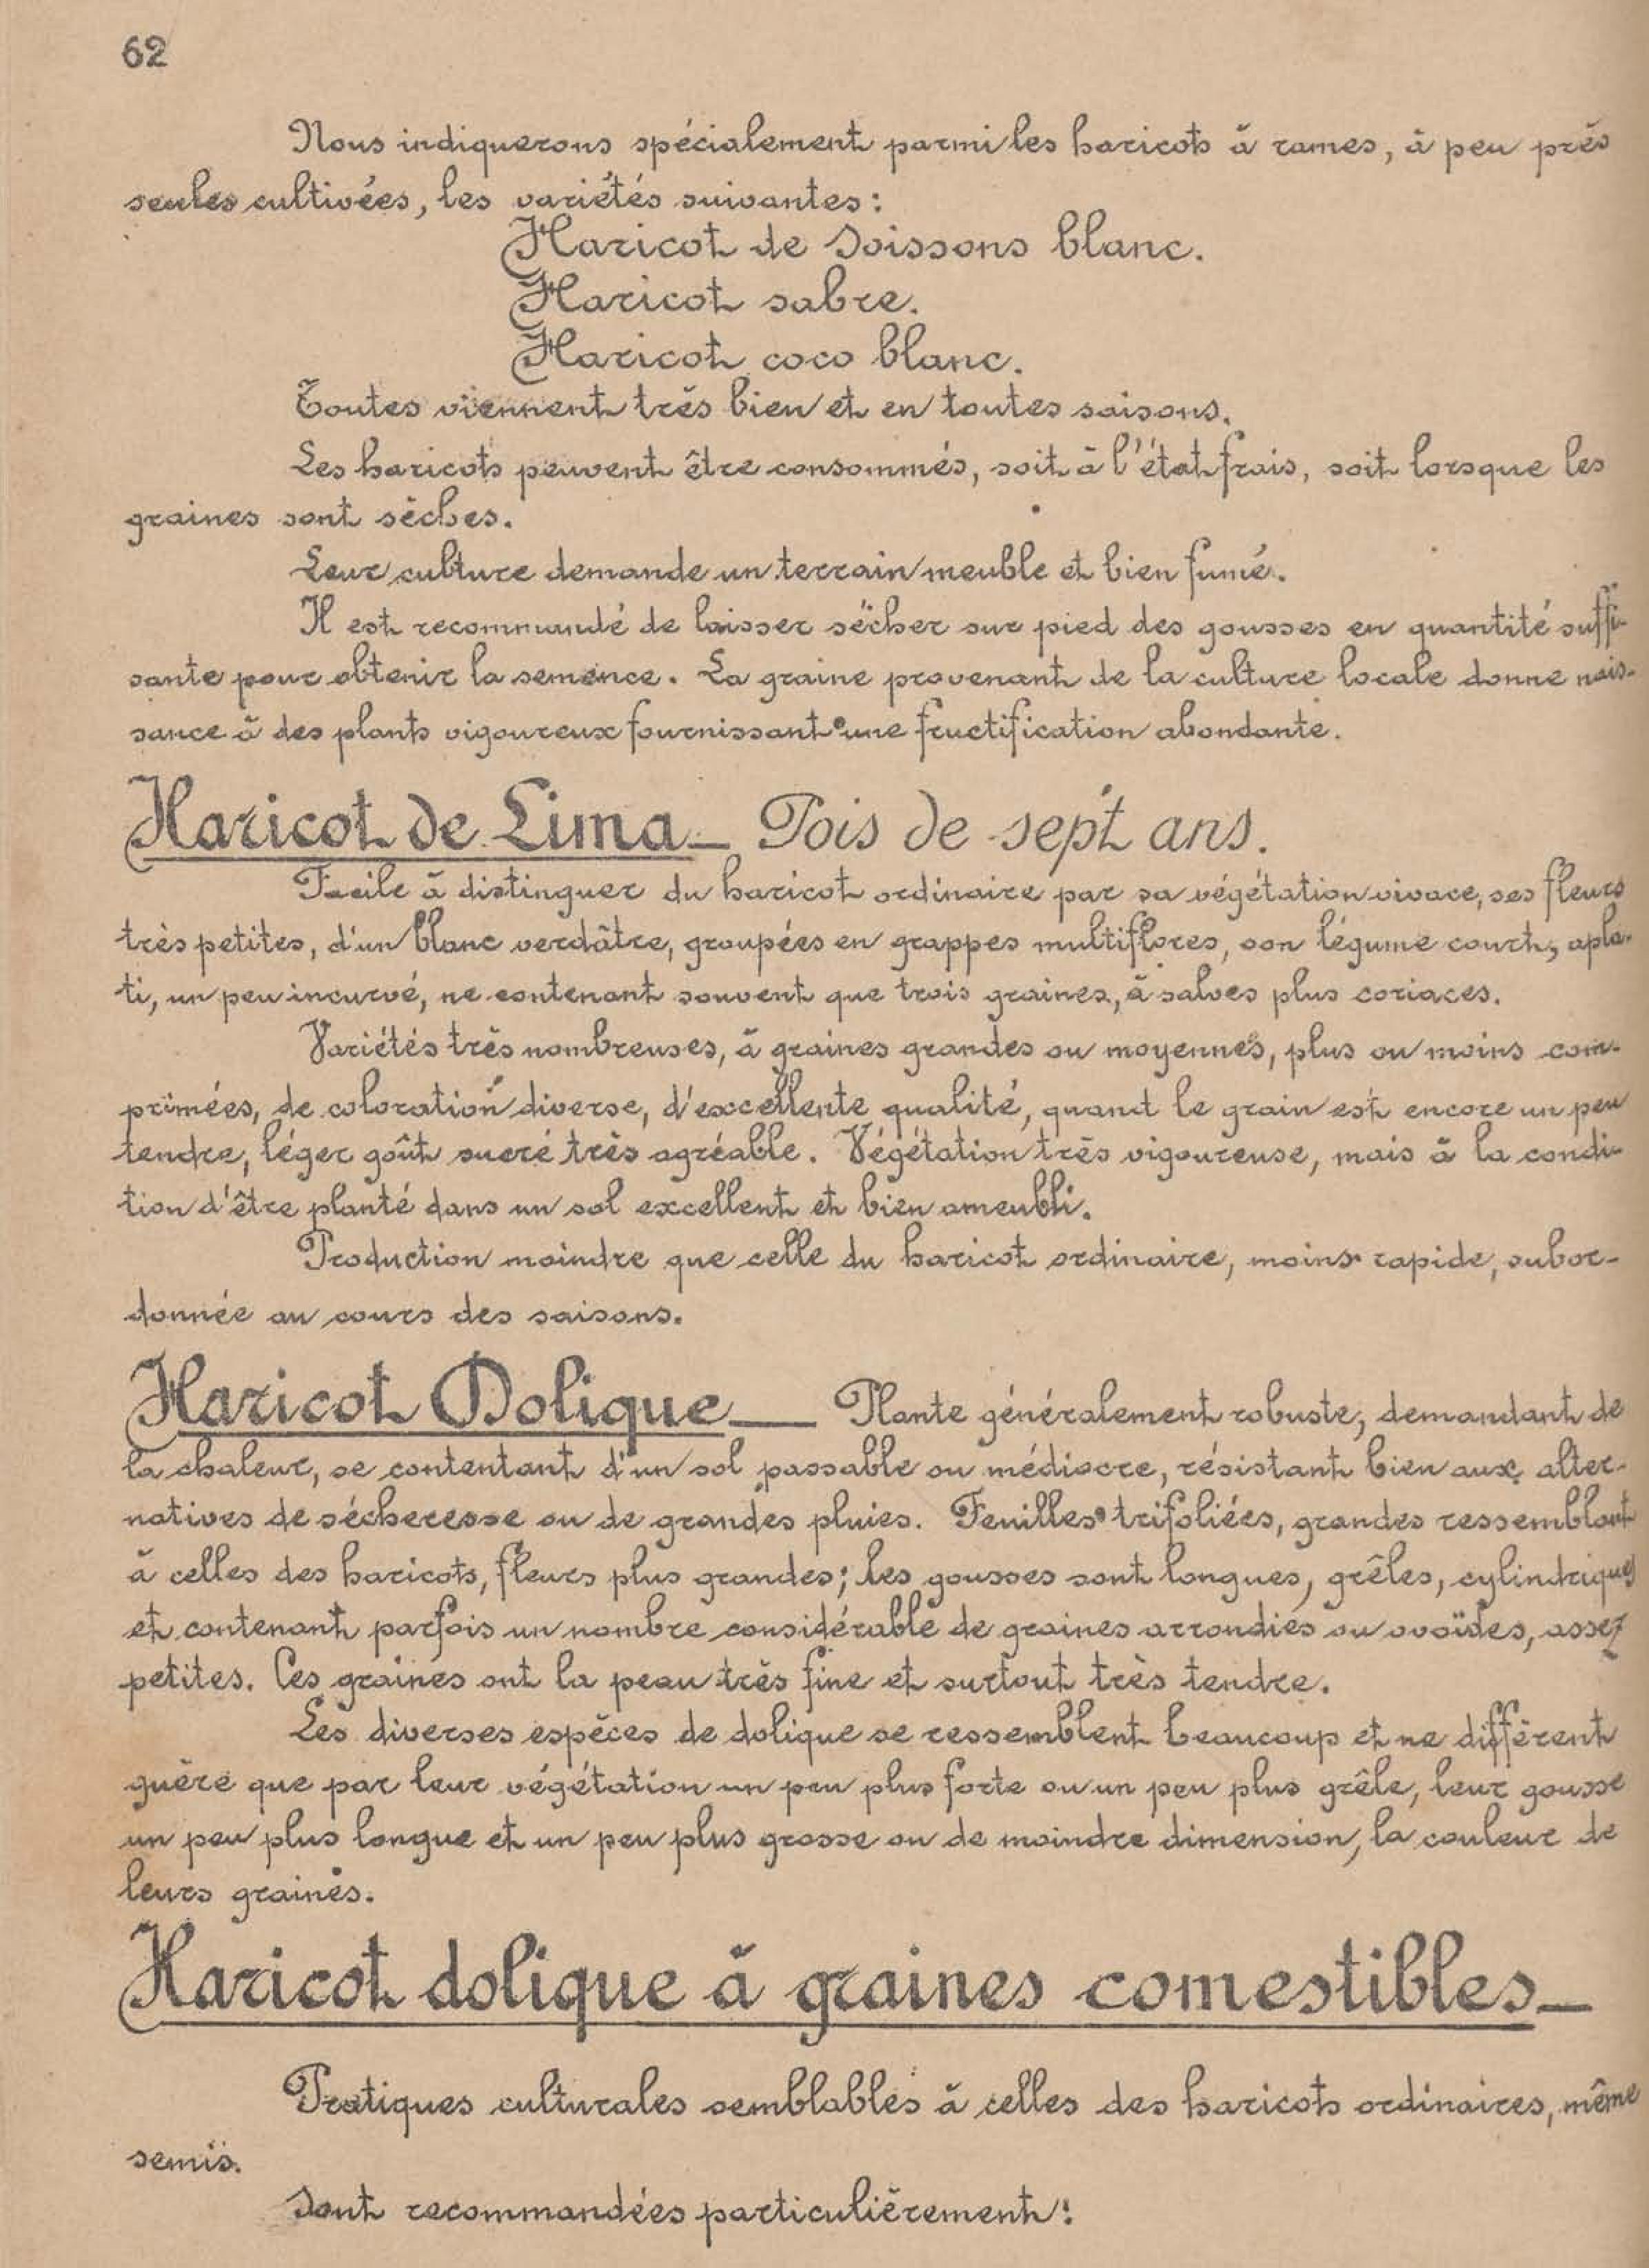 62
Nous indiquerons spécialement parmi les haricots à rames, à peu près
seules cultivées, les variétés suivantes :
Haricot de Soissons blanc.
Haricot sabre.
Haricot coco blanc.
Toutes viennent très bien et en toutes saisons.
Les haricots peuvent être consommés, soit à l'état frais, soit lorsque les
graines sont sèches.
Leur culture demande un terrain meuble et bien fumé.
Il est recommandé de laisser sécher sur pied des gousses en quantité suffi-
sante pour obtenir la semence. La graine provenant de la culture locale donne nais-
sance à des plants vigoureux fournissant une fructification abondante.
Haricot de Lima — Pois de sept ans.
Facile à distinguer du haricot ordinaire par sa végétation vivace, ses fleurs
très petites, d'un blanc verdâtre, groupées en grappes multiflores, son légume court, apla-
ti, un peu incurvé, ne contenant souvent que trois graines, à valves plus coriaces.
Variétés très nombreuses, à graines grandes ou moyennes, plus ou moins com-
primées, de coloration diverse, d'excellente qualité, quand le grain est encore un peu
tendre, léger goût sucré très agréable. Végétation très vigoureuse, mais à la condi-
tion d'être planté dans un sol excellent et bien ameubli.
Production moindre que celle du haricot ordinaire, moins rapide, subor-
donnée au cours des saisons.
Haricot Dolique — Plante généralement robuste, demandant de
la chaleur, se contentant d'un sol passable ou médiocre, résistant bien aux alter-
natives de sécheresse ou de grandes pluies. Feuilles trifoliées, grandes ressemblant
à celles des haricots, fleurs plus grandes ; les gousses sont longues, grêles, cylindriques
et contenant parfois un nombre considérable de graines arrondies ou ovoïdes, assez
petites. Ces graines ont la peau très fine et surtout très tendre.
Les diverses espèces de dolique se ressemblent beaucoup et ne diffèrent
guère que par leur végétation un peu plus forte ou un peu plus grêle, leur gousse
un peu plus longue et un peu plus grosse ou de moindre dimension, la couleur de
leurs graines.
Haricot dolique à graines comestibles —
Pratiques culturales semblables à celles des haricots ordinaires, même
semis.
Sont recommandées particulièrement :